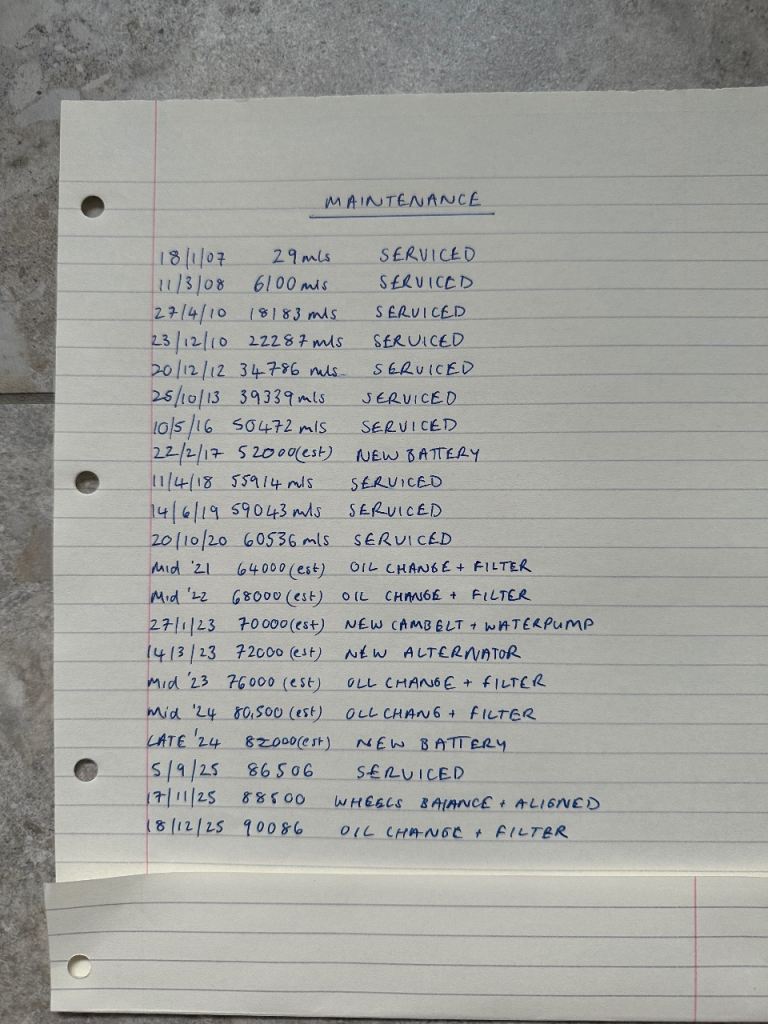 MAINTENANCE
18/1/07 29 mls SERVICED
11/3/08 6100 mls SERVICED
27/4/10 18183 mls SERVICED
23/12/10 22287 mls SERVICED
20/12/12 34786 mls SERVICED
25/10/13 39339 mls SERVICED
10/5/16 50472 mls SERVICED
22/2/17 52000 (est) NEW BATTERY
11/4/18 55914 mls SERVICED
14/6/19 59043 mls SERVICED
20/10/20 60536 mls SERVICED
Mid '21 64000 (est) OIL CHANGE + FILTER
Mid '22 68000 (est) OIL CHANGE + FILTER
27/1/23 70000 (est) NEW CAMBELT + WATERPUMP
14/3/23 72000 (est) NEW ALTERNATOR
Mid '23 76000 (est) OIL CHANGE + FILTER
Mid '24 80,500 (est) OIL CHANG + FILTER
LATE '24 82000 (est) NEW BATTERY
5/9/25 86506 SERVICED
17/11/25 88500 WHEELS BALANCE + ALIGNED
18/12/25 90086 OIL CHANGE + FILTER